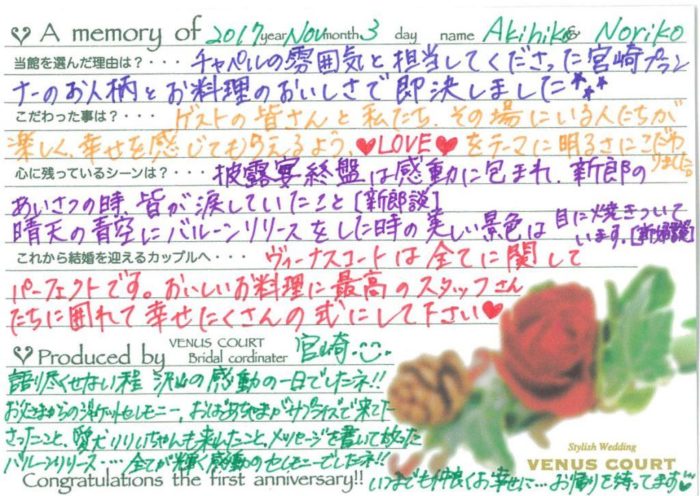 A memory of 2017 year Nov month 3 day name Akihiko & Noriko
当館を選んだ理由は？・・・ チャペルの雰囲気と担当してくださった宮崎プラン
ナーのお人柄とお料理のおいしさで即決しました
こだわった事は？・・・ ゲストの皆さんと私たち、その場にいる人たちが
楽しく、幸せを感じてもらえるよう、♥LOVE♥をテーマに明るさにこだわりました。
心に残っているシーンは？・・・ 披露宴終盤は感動に包まれ、新郎の
あいさつの時、皆が涙していたこと[新郎談]
晴天の青空にバルーンリリースをした時の美しい景色は目に焼きついています。[新婦談]
これから結婚を迎えるカップルへ・・・ ヴィーナスコートは全てに関して
パーフェクトです。おいしいお料理に最高のスタッフさん
たちに囲れて幸せたくさんの式にして下さい♥
Produced by VENUS COURT Bridal cordinater 宮崎
語り尽くせない程 沢山の感動の一日でしたネ!!
お父さまからのジャケットセレモニー、おばあちゃまがサプライズで来て下
さったこと、愛犬リリィちゃんも来れたこと、メッセージを書いて放った
バルーンリリース・・・ 全てが輝く感動のセレモニーでしたネ!!
Congratulations the first anniversary!! いつまでも仲良くお幸せに… お帰りを待ってます
Stylish Wedding
VENUS COURT